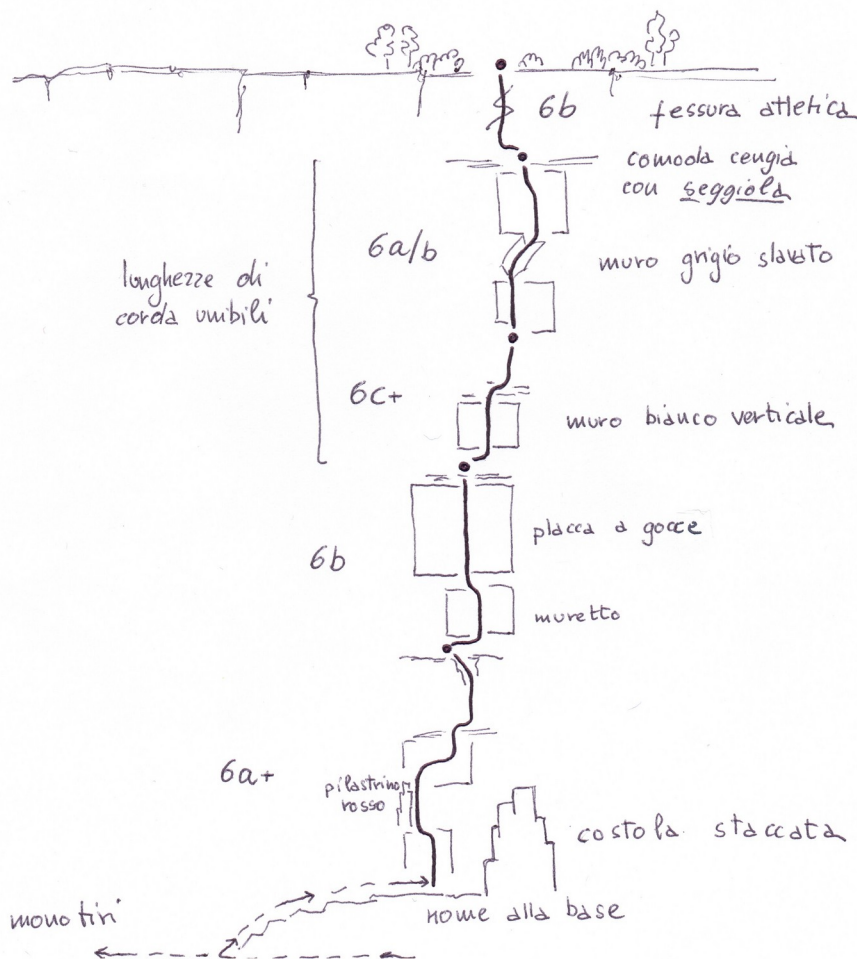 6b
fessura atletica
comoda cengia
con seggiola
6a/b
muro grigio slavato
lunghezze di
corda unibili
6c+
muro bianco verticale
placca a gocce
6b
muretto
6a+
pilastrino
rosso
costola staccata
nome alla base
monotiri